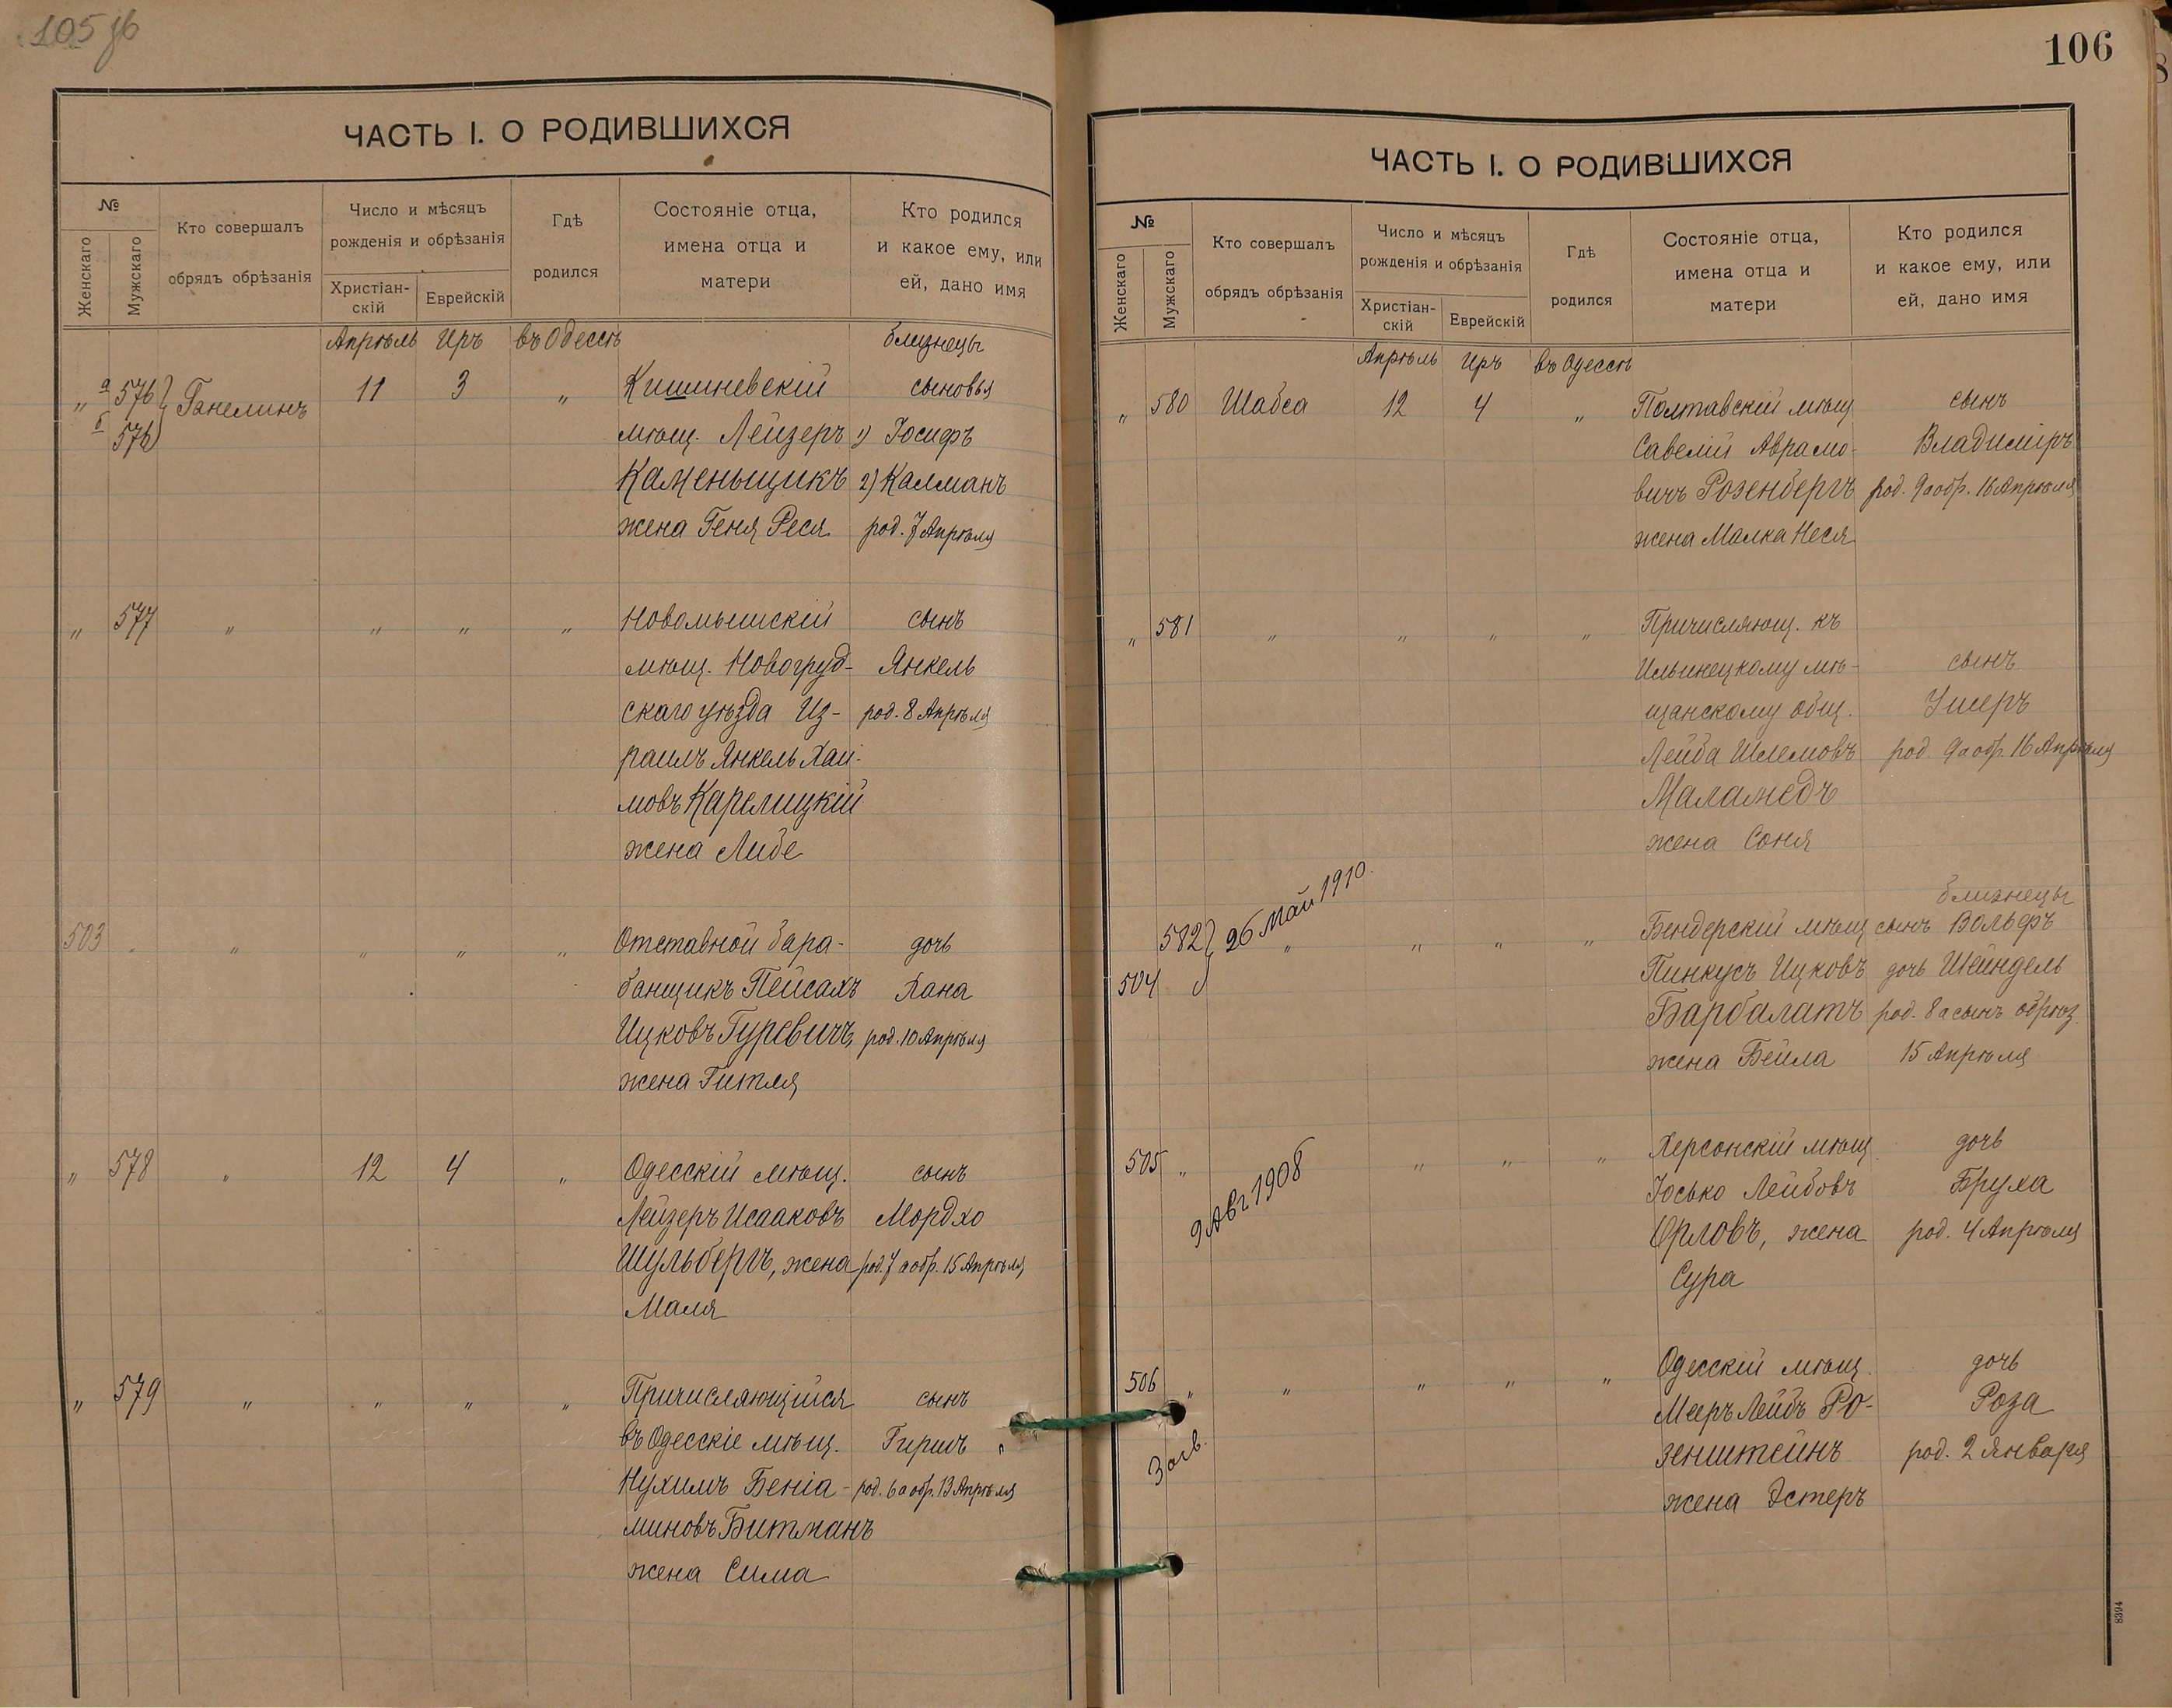 105 об
ЧАСТЬ I. О РОДИВШИХСЯ
№
Женскаго
Мужскаго
Кто совершалъ
обрядъ обрѣзанія
Число и мѣсяцъ
рожденія и обрѣзанія
Христіан-
скій
Еврейскій
Гдѣ
родился
Состояніе отца,
имена отца и
матери
Кто родился
и какое ему, или
ей, дано имя
Апрѣль Иръ въ Одессѣ близнецы
„ а 576 Ганелинъ 11 3 „ Кишиневскій сыновья
б 576 мѣщ. Лейзеръ 1) Іосифъ
Каменьщикъ 2) Калманъ
жена Геня Реся род. 7 Апрѣля
„ 577 „ „ „ „ Новомышскій сынъ
мѣщ. Новогруд- Янкель
скаго уѣзда Из- род. 8 Апрѣля
раиль Янкель Хаи-
мовъ Карелицкій
жена Либе
503 „ „ „ „ „ Отставной бара- дочь
банщикъ Пейсахъ Хана
Ицковъ Гуревичъ, род. 10 Апрѣля
жена Гитля
„ 578 „ 12 4 „ Одесскій мѣщ. сынъ
Лейзеръ Исааковъ Мордхо
Шульбергъ, жена род. 7 а обр. 15 Апрѣля
Маля
„ 579 „ „ „ „ Причисляющійся сынъ
въ Одесскіе мѣщ. Гиршъ „
Нухимъ Беніа- род. 6 а обр. 13 Апрѣля
миновъ Битманъ
жена Сима
106
ЧАСТЬ I. О РОДИВШИХСЯ
№
Женскаго
Мужскаго
Кто совершалъ
обрядъ обрѣзанія
Число и мѣсяцъ
рожденія и обрѣзанія
Христіан-
скій
Еврейскій
Гдѣ
родился
Состояніе отца,
имена отца и
матери
Кто родился
и какое ему, или
ей, дано имя
Апрѣль Иръ въ Одессѣ
„ 580 Шабса 12 4 „ Полтавскій мѣщ сынъ
Савелій Аврамо- Владиміръ
вичъ Розенбергъ род. 9 а обр. 16 Апрѣля
жена Малка Неся
„ 581 „ „ „ „ Причисляющ. къ
Ильинецкому мѣ- сынъ
щанскому общ. Ушеръ
Лейба Шлемовъ род. 9 а обр. 16 Апрѣля
Маламедъ
жена Соня
близнецы
582 26 май 1910. „ „ „ „ Бендерскій мѣщ сынъ Вольфъ
504 Пинкусъ Ицковъ дочь Шейндель
Барбалатъ род. 8 а сынъ обрѣз.
жена Бейла 15 Апрѣля
505 „ 9 Авг 1908 „ „ „ Херсонскій мѣщ. дочь
Іосько Лейбовъ Бруха
Орловъ, жена род. 4 Апрѣля
Сура
506 „ „ „ „ „ Одесскій мѣщ. дочь
Мееръ Лейбъ Ро- Роза
зенштейнъ род. 2 Января
жена Эстеръ
8394